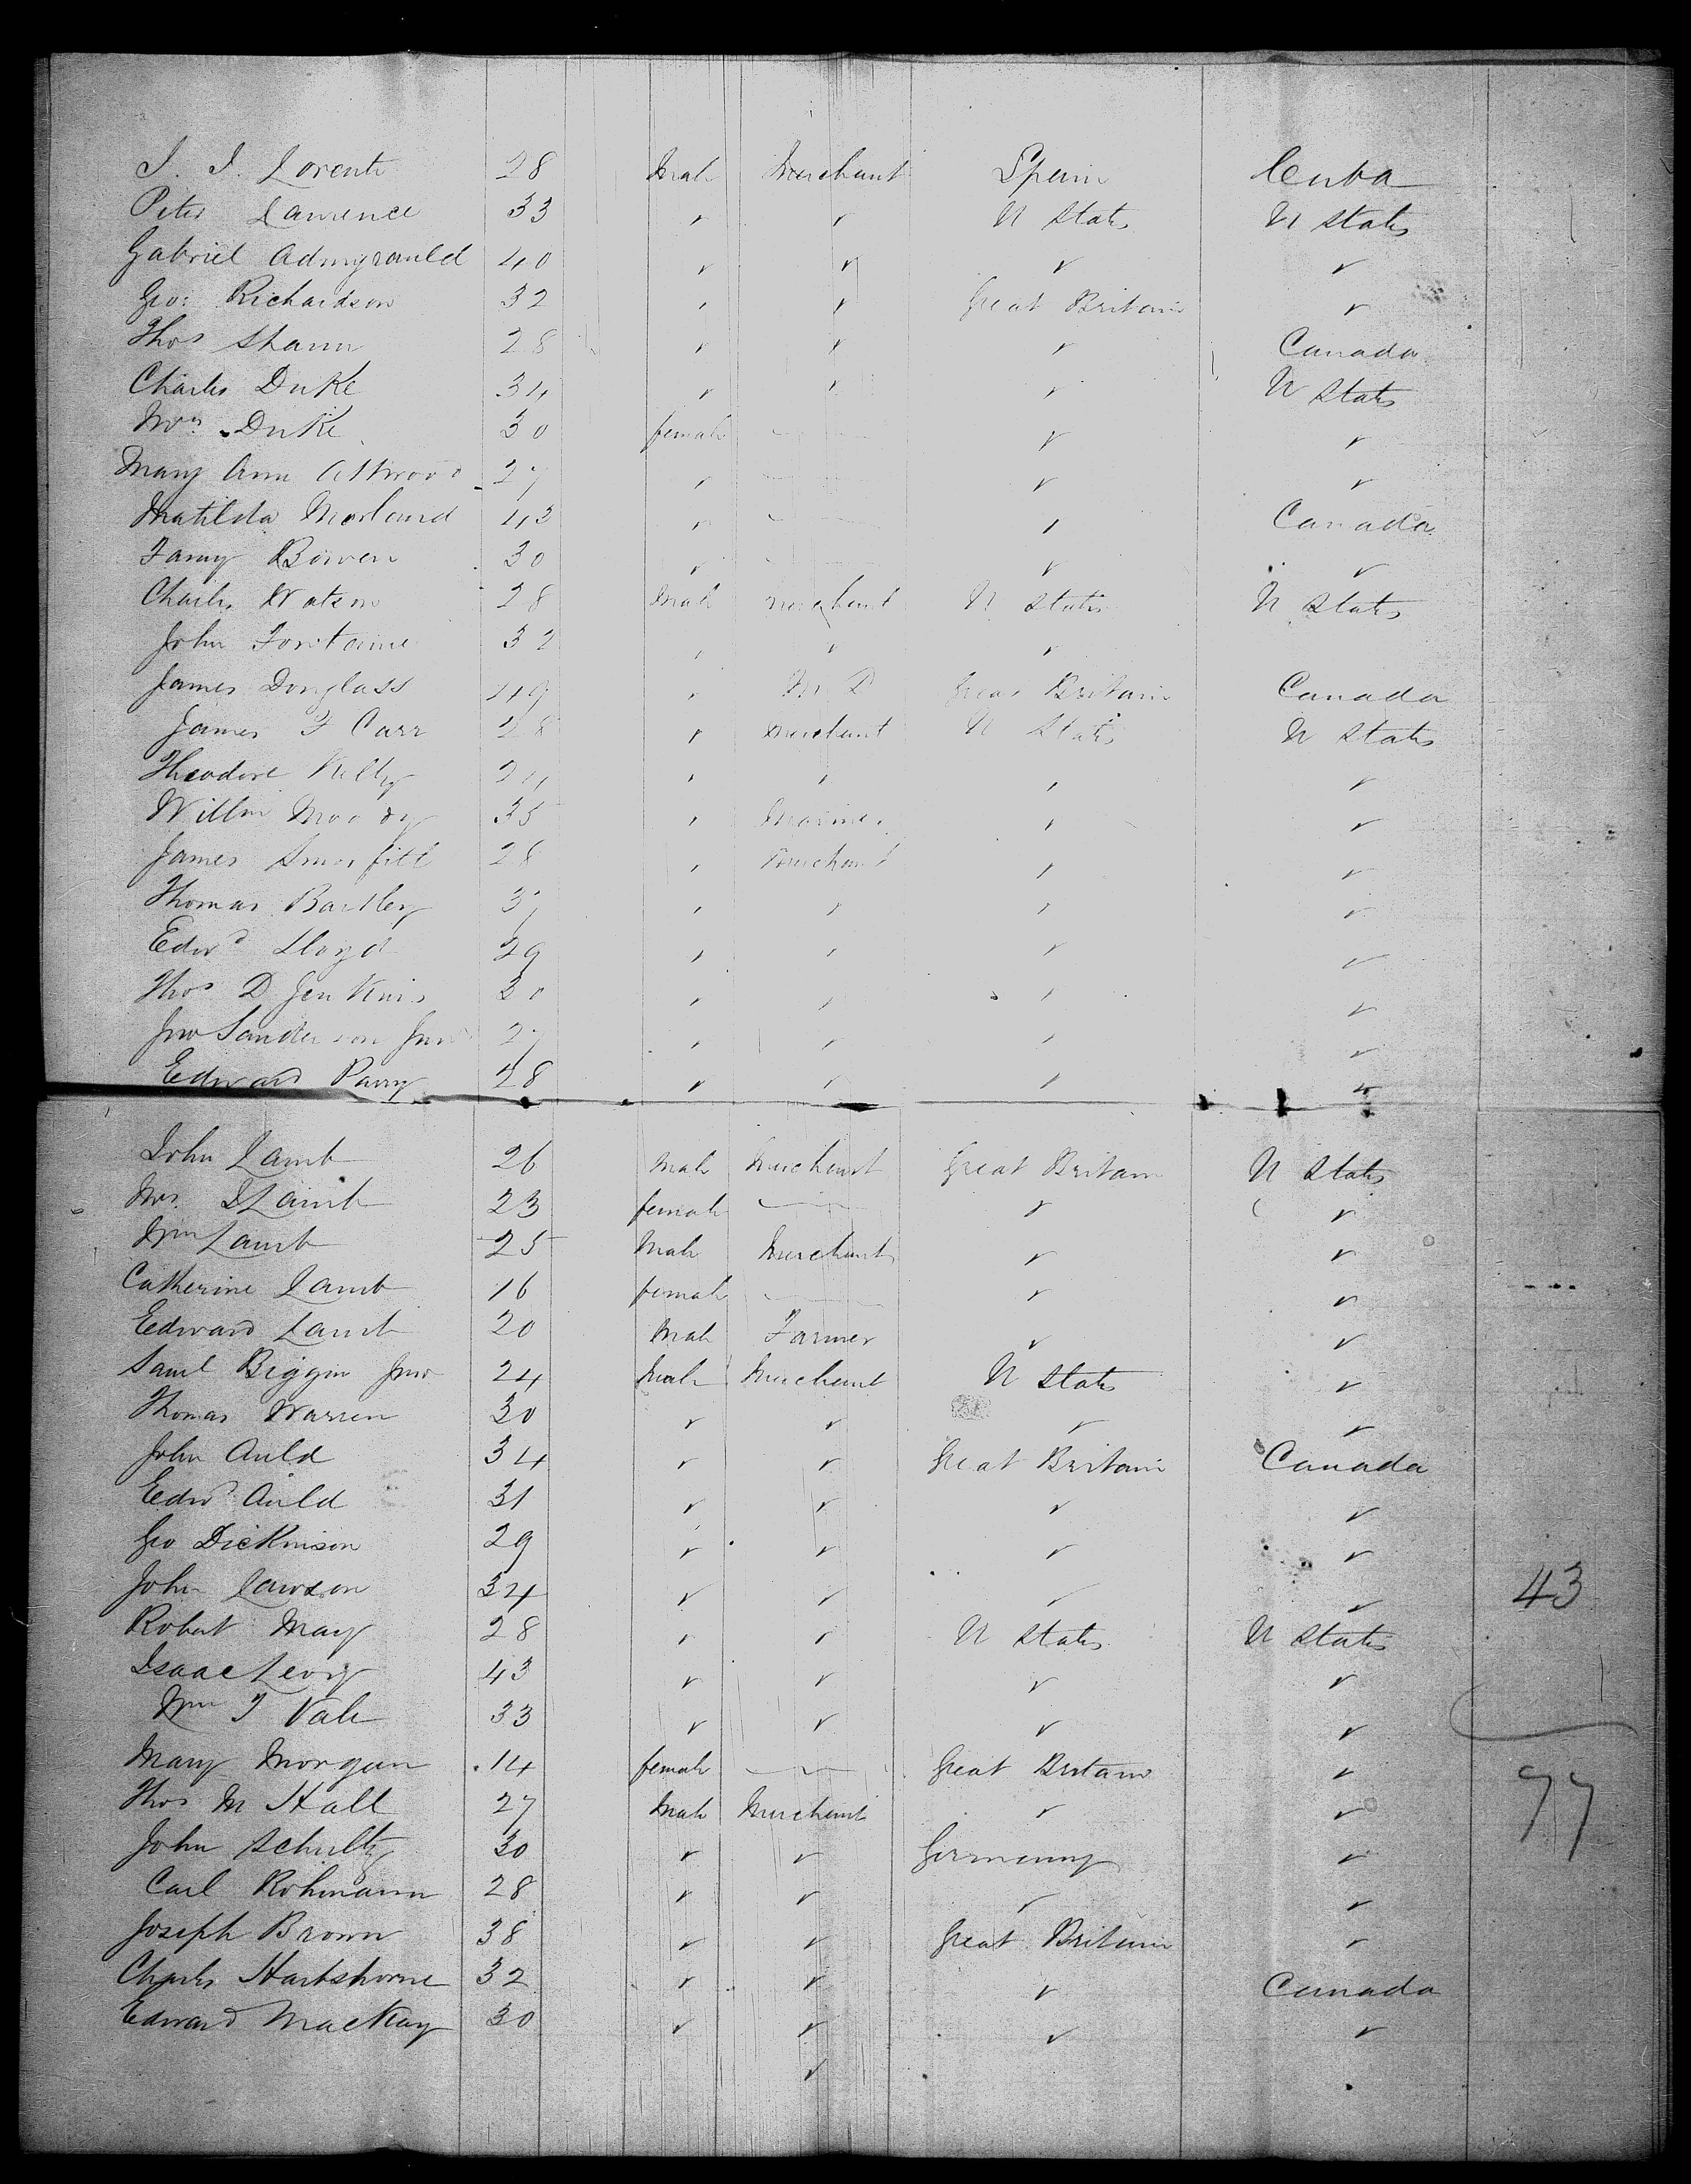 J. J. Lorente 28 Male Merchant Spain Cuba
Peter Lawrence 33 " " U States U States
Gabriel 40 " " " "
Geo: Richardson 32 " " Great Britain "
Thos Shann 28 " " " Canada
Charles Duke 34 " " " U States
Mrs Duke 30 female — " "
Mary Ann Attwood 27 " — " "
Matilda Morland 43 " — " Canada
Fanny Bowen 30 " — " "
Charles Watson 28 Male Merchant U States U States
John Fontaine 32 " " "
James Douglass 49 " M D Great Britain Canada
James F Carr 28 " Merchant U States U States
Theodore Kelly " " " "
Willm Moody 35 " Mariner " "
James 28 " Merchant " "
Thomas Bartley " " " "
Edwd Lloyd 29 " " " "
Thos D Jenkins 30 " " " "
Jno Sanderson Junr " " " "
Edward Parry 28 " " " "
John Lamb 26 Male Merchant Great Britain U States
Mrs Lamb 23 female — " "
Wm Lamb 25 Male Merchant " "
Catherine Lamb 16 female — " "
Edward Lamb 20 Male Farmer " "
Saml Biggin Junr 24 Male Merchant U States "
Thomas Warren 30 " " " "
John Auld 34 " " Great Britain Canada
Edwd Auld 31 " " " "
Geo Dickinson 29 " " " "
John Lawson 34 " " " "
43
Robert May 28 " " U States U States
Isaac Levy 43 " " " "
Wm T Vale 33 " " " "
Mary Morgan 14 female — Great Britain "
77
Thos M Hall 27 Male Merchant " "
John Schultz 30 " " Germany "
Carl Rohmann 28 " " " "
Joseph Brown 38 " " Great Britain "
Charles Hartshorne 32 " " " Canada
Edward MacKay 30 " " " "
"